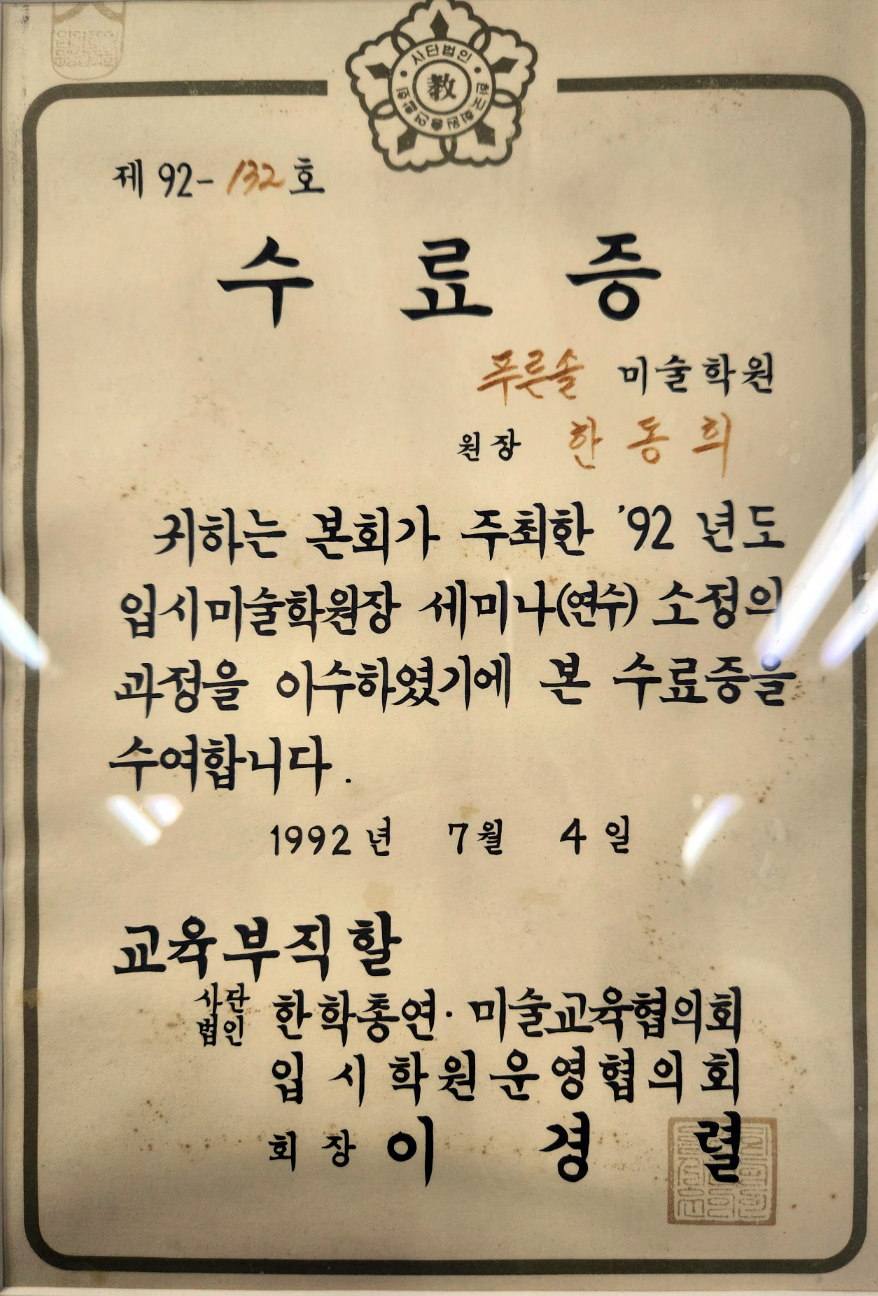 사단법인
한국학원총연합회
教
제 92-132호
수료증
푸른솔 미술학원
원장 한동희
귀하는 본회가 주최한 '92 년도
입시미술학원장 세미나(연수) 소정의
과정을 이수하였기에 본 수료증을
수여합니다.
1992년 7월 4일
교육부직할
사단법인 한학총연·미술교육협의회
입시학원운영협의회
회장 이경렬